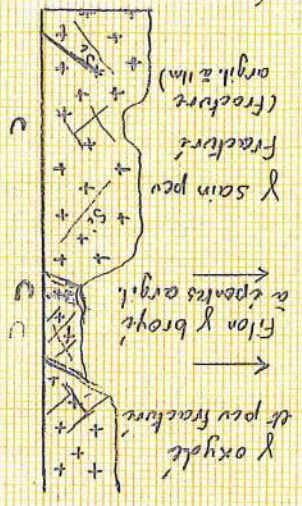 γ oxydé
et peu fracturé
Filon γ broyé
à épontes argil.
Si
γ sain peu
fracturé
(fracture
argil. à 11m)
Si